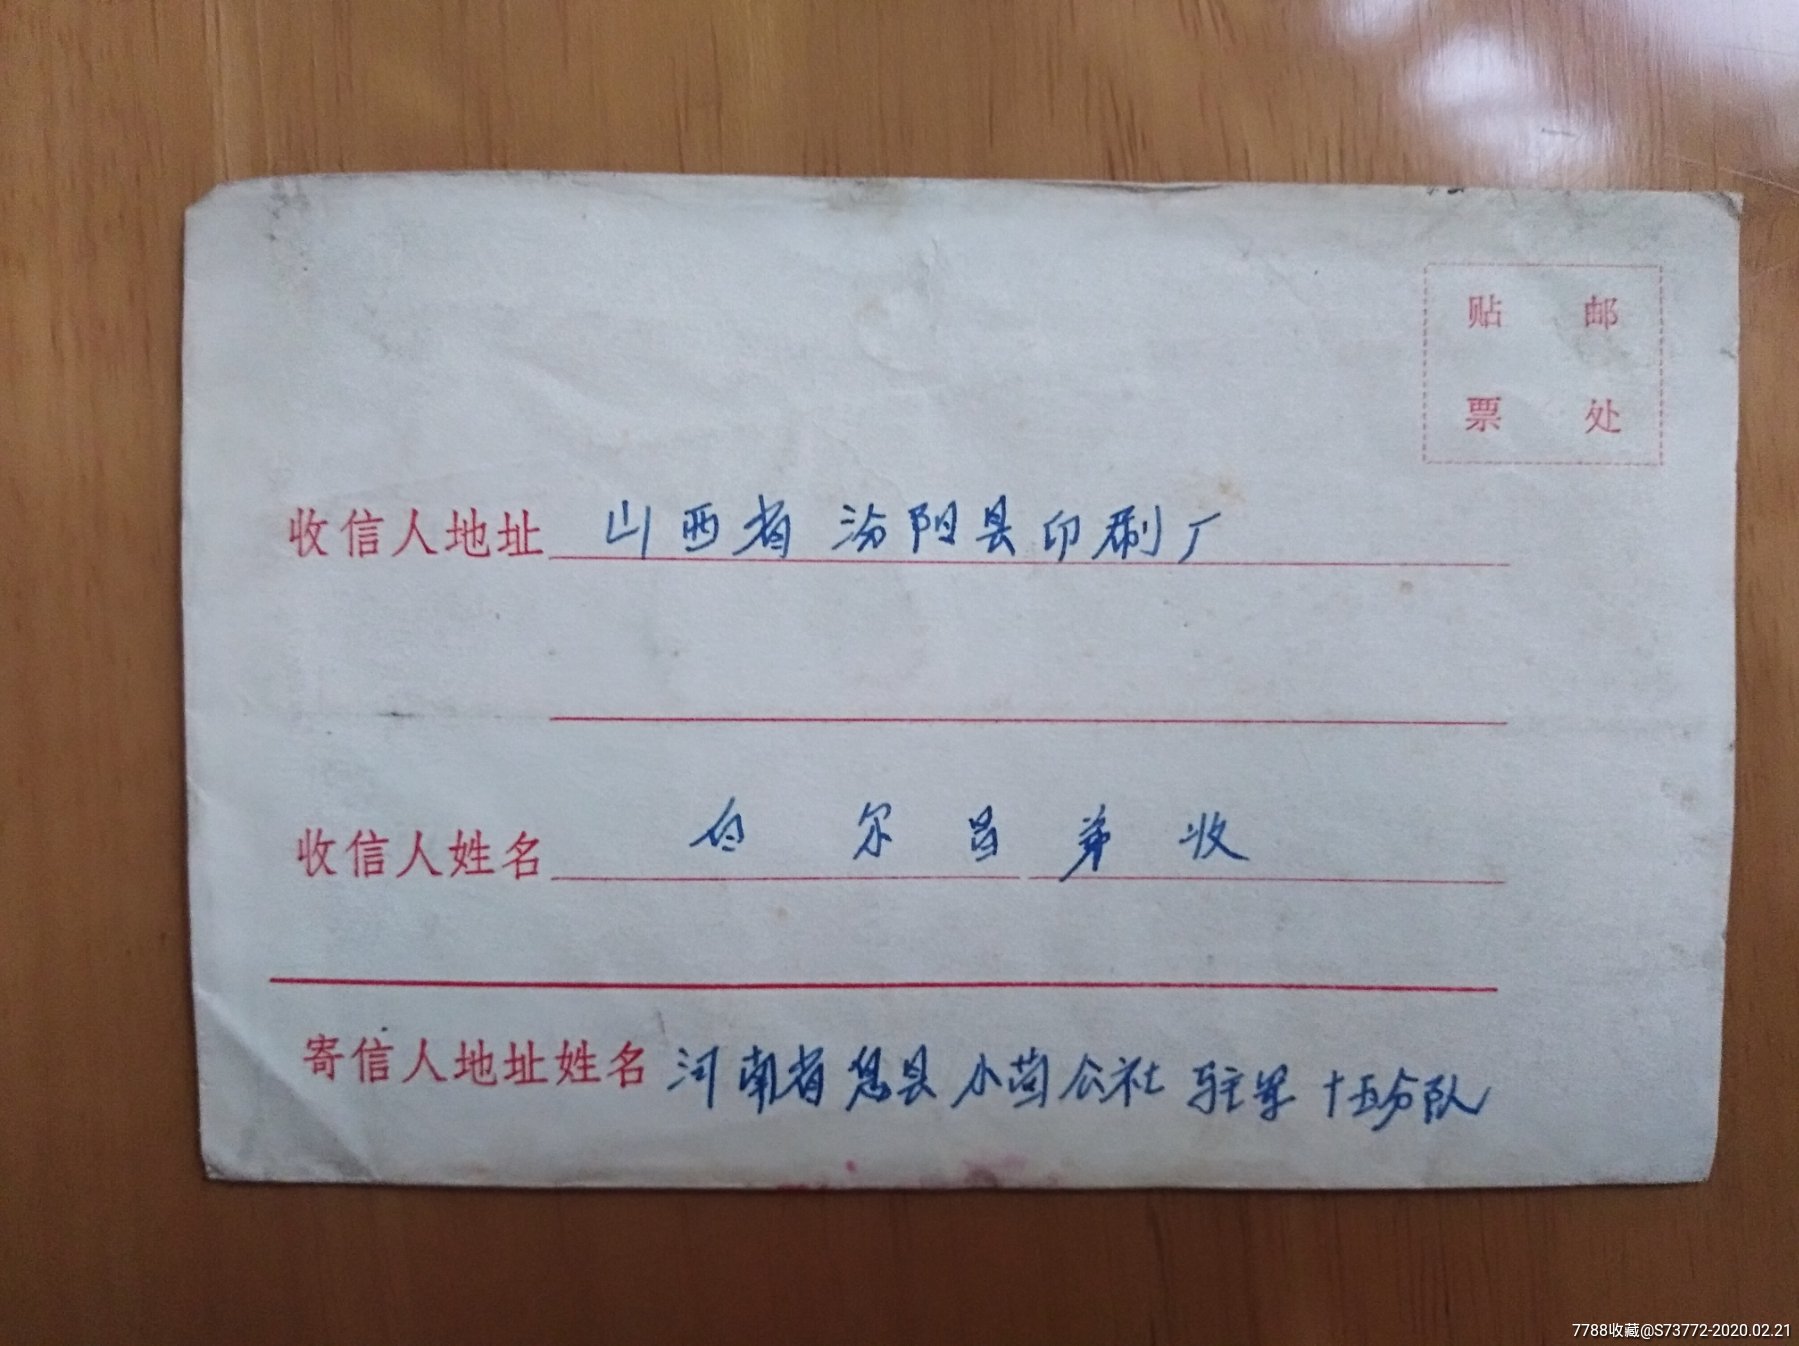 贴 邮
票 处
收信人地址 山西省 汾阳县印刷厂
收信人姓名 白 尔 昌 弟 收
寄信人地址姓名 河南省息县小茴公社 驻军 十五分队
7788收藏@S73772-2020.02.21